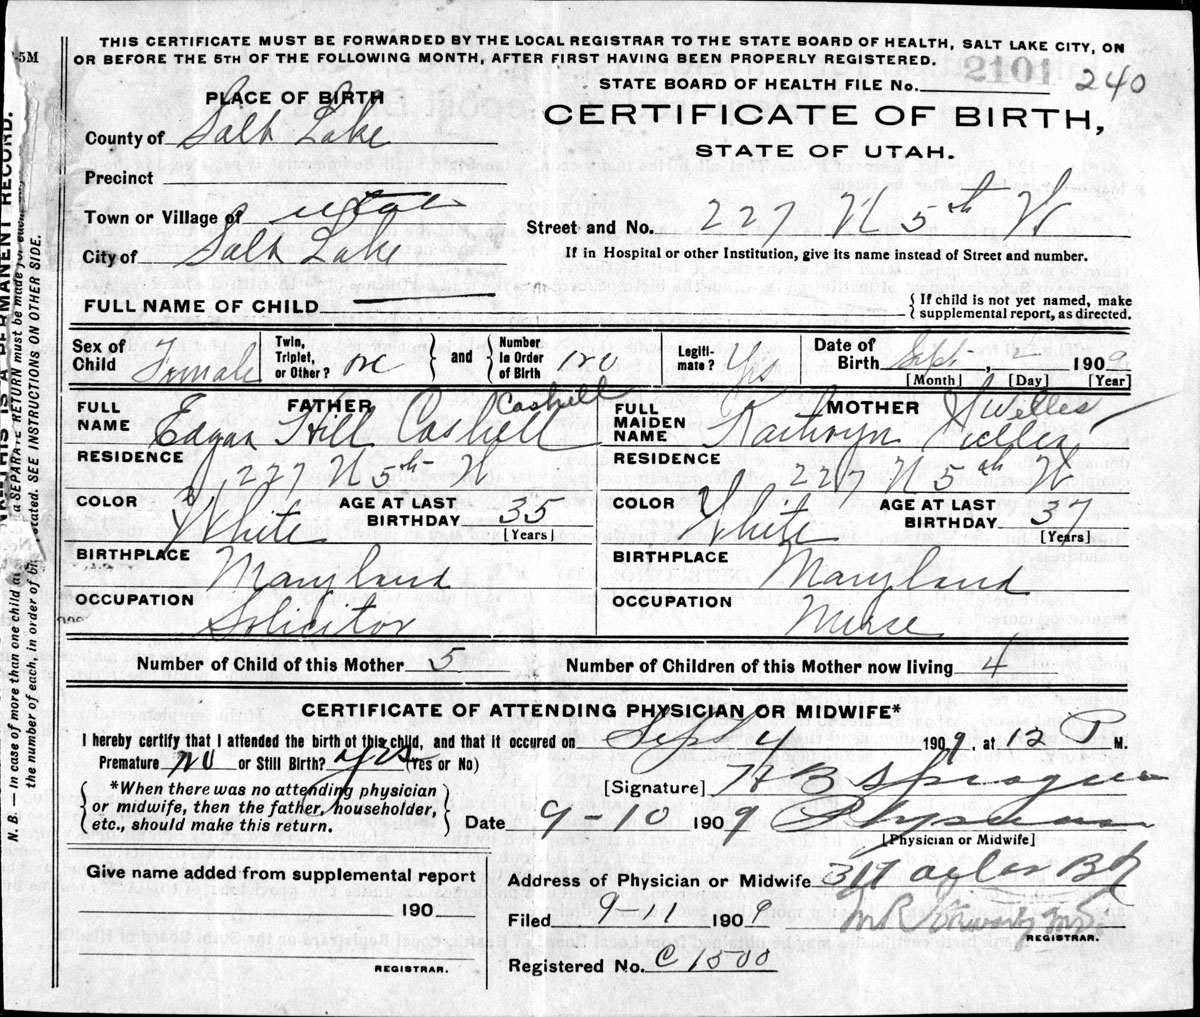 THIS CERTIFICATE MUST BE FORWARDED BY THE LOCAL REGISTRAR TO THE STATE BOARD OF HEALTH, SALT LAKE CITY, ON
OR BEFORE THE 5TH OF THE FOLLOWING MONTH, AFTER FIRST HAVING BEEN PROPERLY REGISTERED.
5M
2101
240
STATE BOARD OF HEALTH FILE No.
PLACE OF BIRTH
CERTIFICATE OF BIRTH,
STATE OF UTAH.
County of Salt Lake
Precinct
Town or Village of Utah
Street and No. 227 N 5th W
City of Salt Lake
If in Hospital or other Institution, give its name instead of Street and number.
FULL NAME OF CHILD
{ If child is not yet named, make
supplemental report, as directed.
Sex of Child Female
Twin, Triplet, or Other? one } and { Number in Order of Birth one
Legitimate? Yes
Date of Birth Sept 1909
[Month] [Day] [Year]
FULL NAME FATHER Edgar Hill Cashell Cashell
FULL MAIDEN NAME MOTHER Kathryn Welles
RESIDENCE 227 N 5th W
RESIDENCE 227 N 5th W
COLOR White AGE AT LAST BIRTHDAY 35 [Years]
COLOR White AGE AT LAST BIRTHDAY 37 [Years]
BIRTHPLACE Maryland
BIRTHPLACE Maryland
OCCUPATION Solicitor
OCCUPATION Nurse
Number of Child of this Mother 5 Number of Children of this Mother now living 4
CERTIFICATE OF ATTENDING PHYSICIAN OR MIDWIFE*
I hereby certify that I attended the birth of this child, and that it occured on Sept 4 1909, at 12 P M.
Premature no or Still Birth? yes (Yes or No)
[Signature] H B Sprague
{ *When there was no attending physician
or midwife, then the father, householder,
etc., should make this return. }
Date 9-10 1909 Physician
[Physician or Midwife]
Give name added from supplemental report
190
REGISTRAR.
Address of Physician or Midwife 317
Filed 9-11 1909
REGISTRAR.
Registered No. C 1500
N. B.—In case of more than one child at
a SEPARATE RETURN must be made for each
the number of each, in order of bi stated. SEE INSTRUCTIONS ON OTHER SIDE.
THIS IS A PERMANENT RECORD.